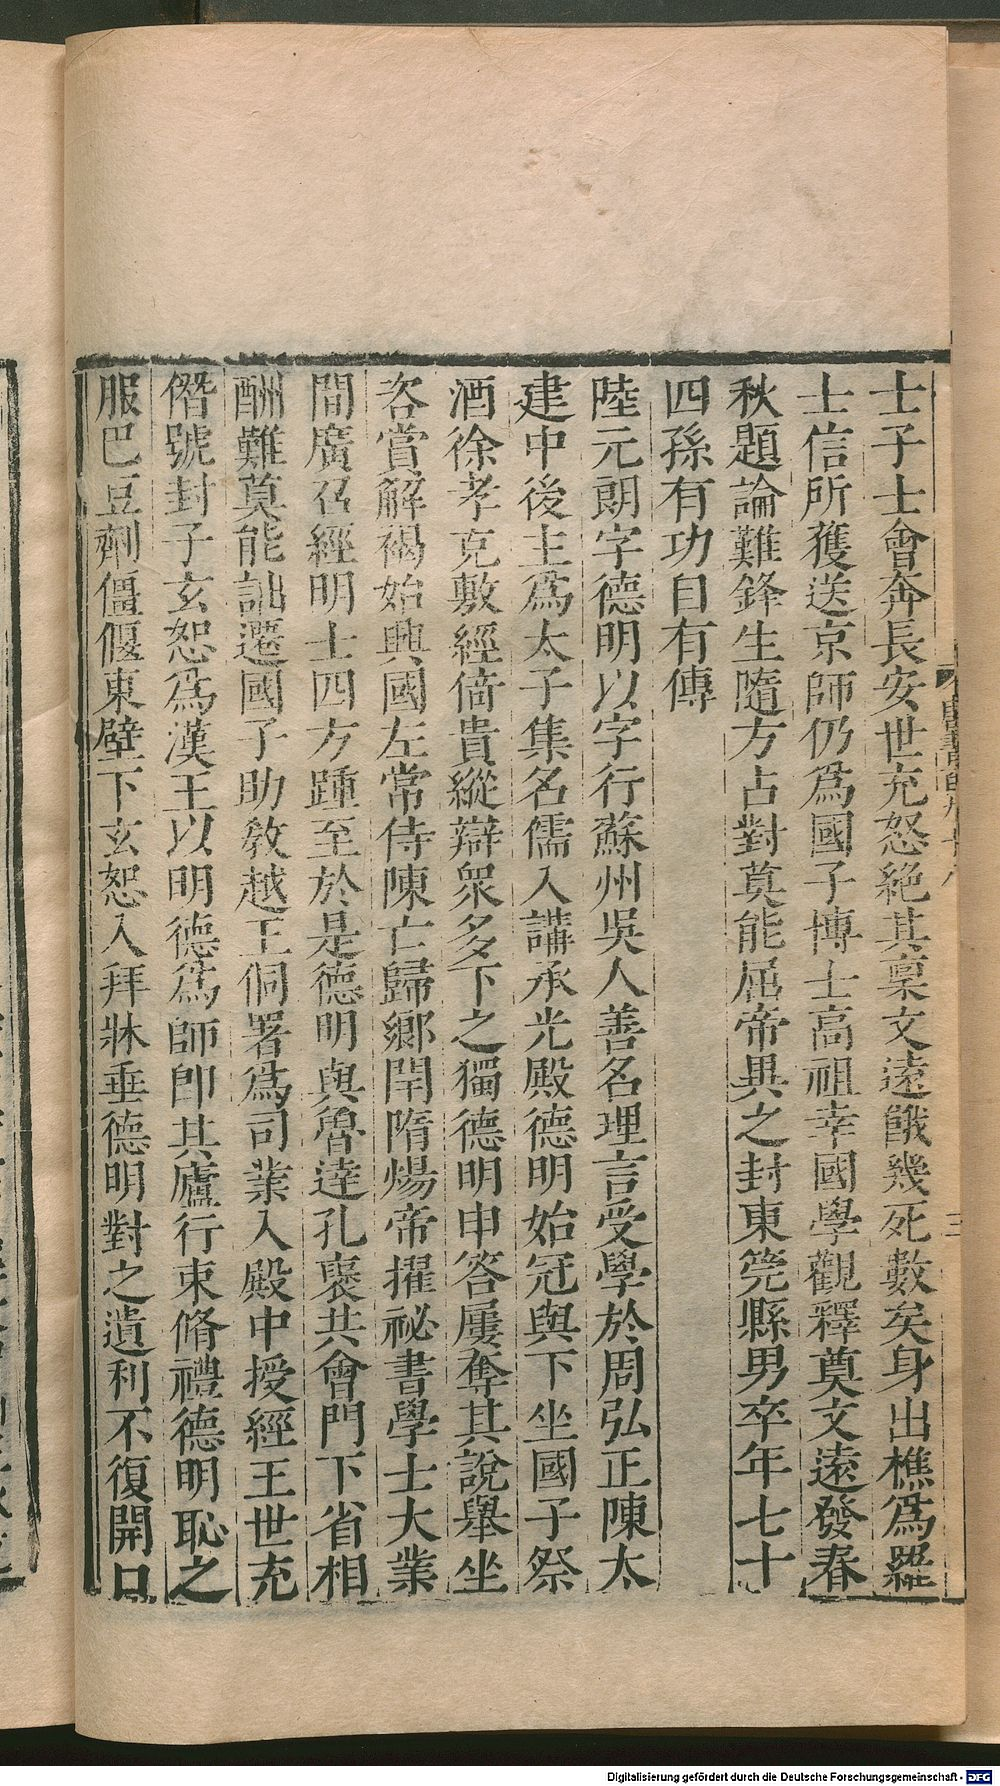 士子士會奔長安世充怒絕其稟文遠餓幾死數矣身出樵爲羅
士信所獲送京師仍爲國子博士高祖幸國學觀釋奠文遠發春
秋題論難鋒生隨方占對莫能屈帝異之封東筦縣男卒年七十
四孫有功自有傳
陸元朗字德明以字行蘇州吳人善名理言受學於周弘正陳太
建中後主爲太子集名儒入講承光殿德明始冠與下坐國子祭
酒徐孝克敷經倚貴縱辯衆多下之獨德明申答屢奪其說舉坐
咨賞解褐始興國左常侍陳亡歸鄉閈隋煬帝擢祕書學士大業
間廣召經明士四方踵至於是德明與魯達孔襃共會門下省相
酬難莫能詘遷國子助敎越王侗署爲司業入殿中授經王世充
僭號封子玄恕爲漢王以明德爲師卽其廬行束脩禮德明恥之
服巴豆劑僵偃東壁下玄恕入拜牀垂德明對之遺利不復開口
三
Digitalisierung gefördert durch die Deutsche Forschungsgemeinschaft - DFG